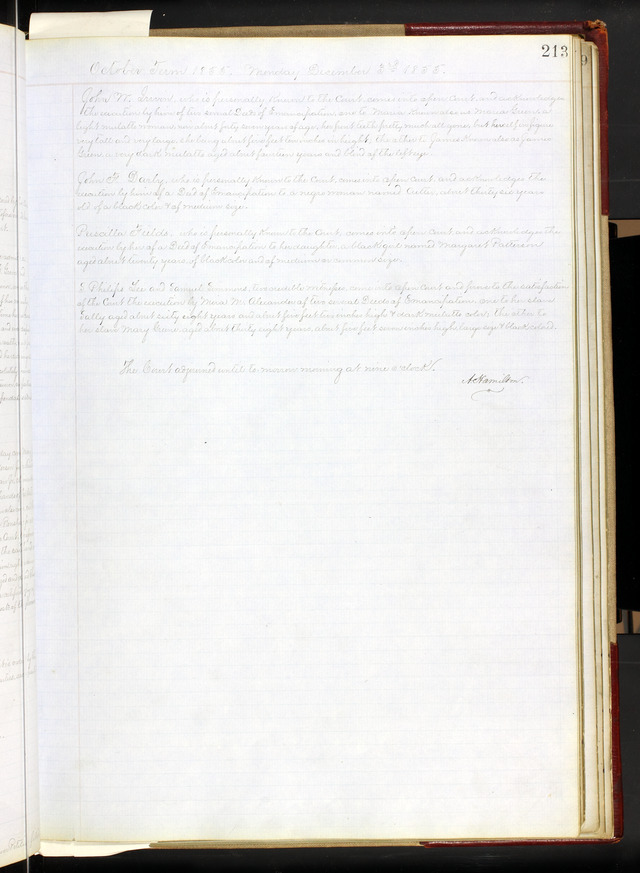 213
October Term 1855. Monday December 3d 1855.
John W. who is personally known to the Court, comes into open Court, and acknowledges
the execution by him of two several Deeds of Emancipation, one to Maria known also as Maria a
light mulatto woman, now about forty seven years of age, her but here of fine figure
very tall and very large, she being about five feet in height, the other to James known also as James
a very dark mulatto aged about fourteen years and blind of the left eye.
John F. Darby, who is personally known to the Court, comes into open Court and acknowledges the
execution by him of a Deed of Emancipation to a negro woman named about thirty six years
old of a black color & of medium size.
Priscilla Fields, who is personally known to the Court, comes into open Court and acknowledges the
execution by her of a Deed of Emancipation to her daughter a black girl named Margaret Patterson
aged about twenty years, of black color and of medium or common size.
E. Philips Lee and Samuel Simmons, two credible witnesses, come into open Court and prove to the satisfaction
of the Court the execution by Miss M. Alexander of two several Deeds of Emancipation, one to her slave
Sally aged about sixty eight years and about five feet two inches high & dark mulatto color, the other to
her slave Mary aged about thirty eight years, about five feet seven inches high large size & black colored.
The Court adjourned until to morrow morning at nine o'clock.
A Hamilton